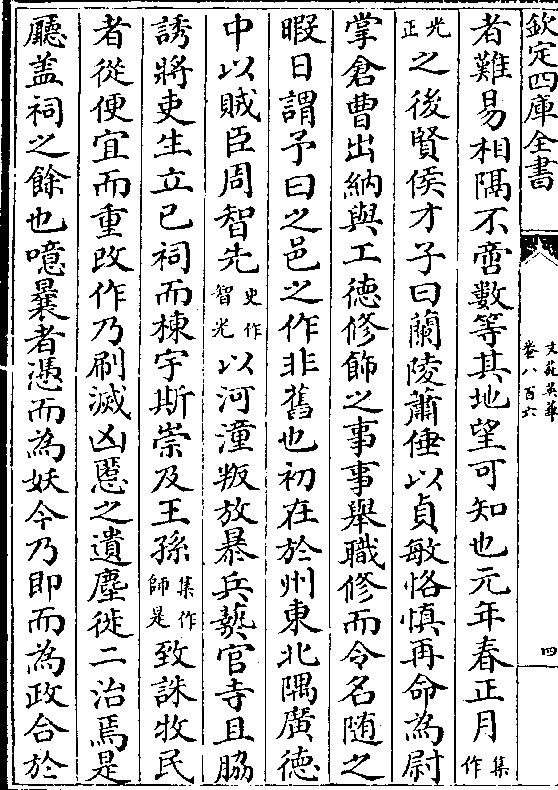 欽定四庫全書
文苑英華
卷八百六
四
者難易相隅不啻數等其地望可知也元年春正月集作
正光之後賢侯才子曰蘭陵蕭倕以貞敏恪慎再命為尉
掌倉曹出納與工德修飾之事事舉職修而令名随之
暇日謂予曰之邑之作非舊也初在於州東北隅廣德
中以賊臣周智先史作智光以河潼叛放暴兵爇官寺且脇
誘將吏生立已祠而棟宇斯崇及王孫集作師是致誅牧民
者從便宜而重改作乃刷滅凶慝之遺塵徙二治焉是
廳盖祠之餘也噫曩者憑而為妖今乃即而為政合於